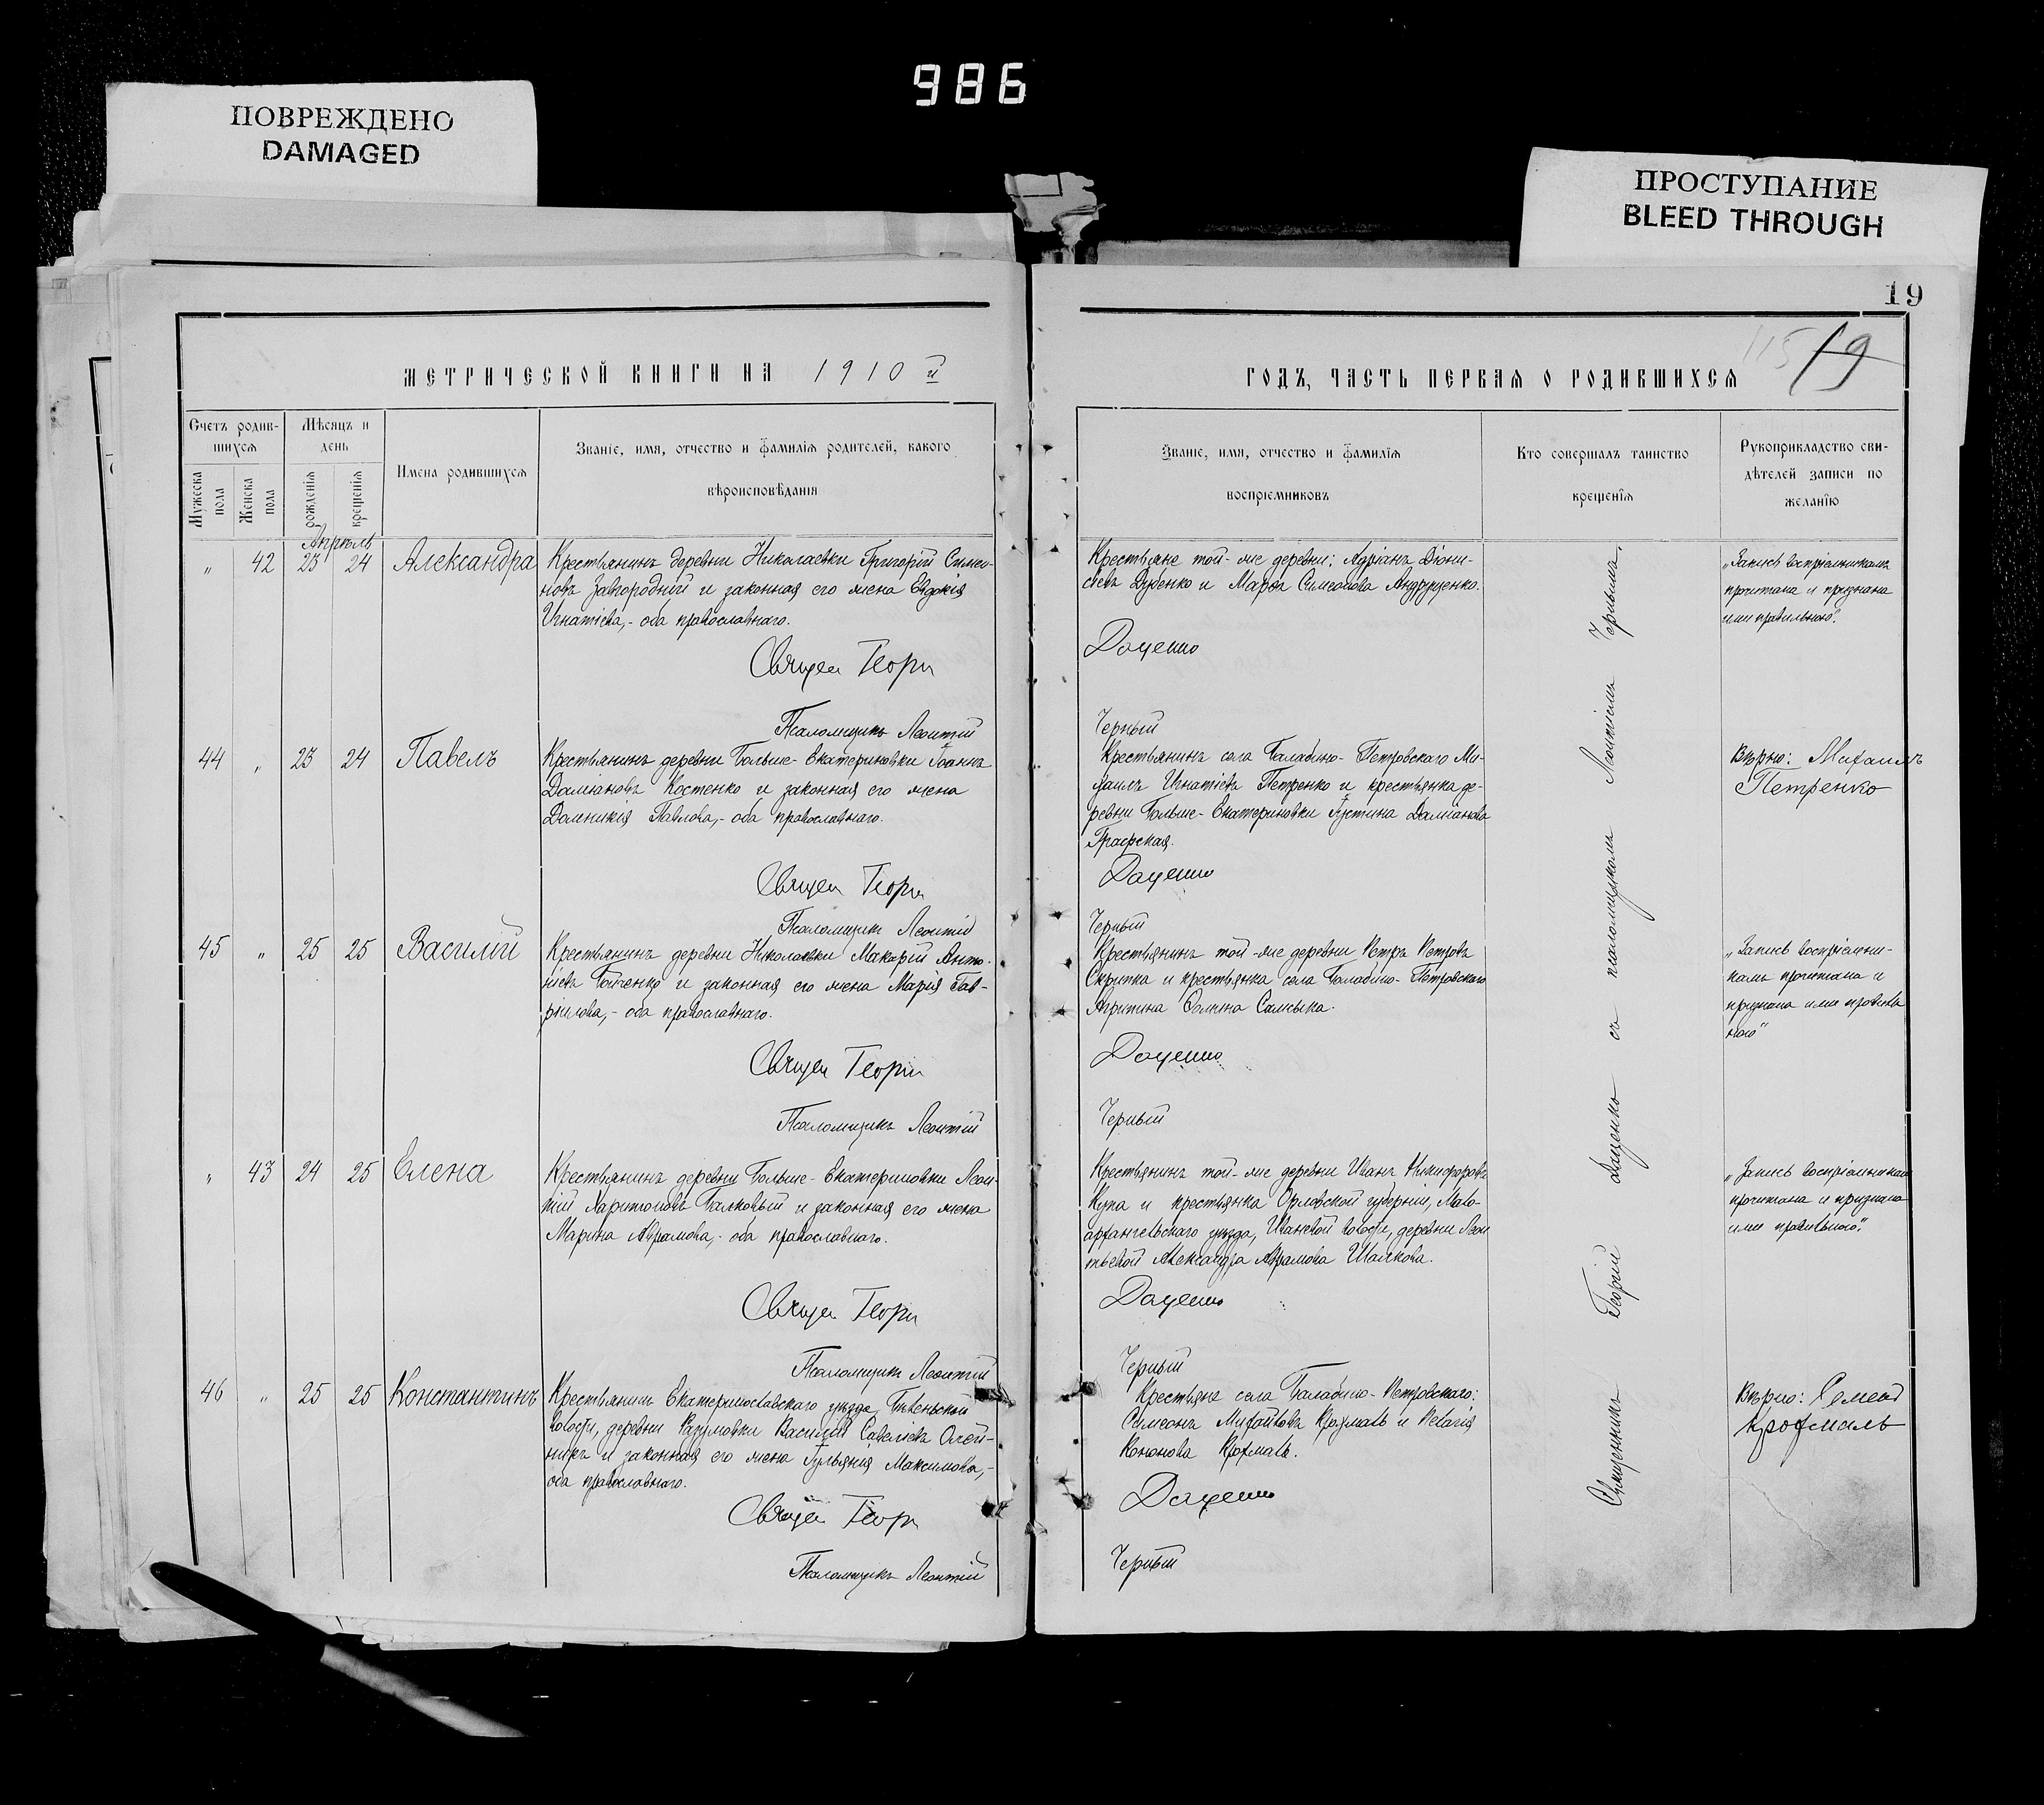 986
ПОВРЕЖДЕНО
DAMAGED
ПРОСТУПАНИЕ
BLEED THROUGH
19
115 19
МЕТРИЧЕСКОЙ КНИГИ НА 1910 й
ГОДЪ, ЧАСТЬ ПЕРВАЯ О РОДИВШИХСЯ
Счетъ родив-
шихся
Мѣсяцъ и
день
Имена родившихся
Званіе, имя, отчество и фамилія родителей, какого
вѣроисповѣданія
Мужеска пола
Женска пола
рожденія
крещенія
Званіе, имя, отчество и фамилія
воспріемниковъ
Кто совершалъ таинство
крещенія
Рукоприкладство сви-
дѣтелей записи по
желанію
Апрѣль
" 42 23 24 Александра
Крестьянинъ деревни Николаевки Григорій
Завгородній и законная его жена Евдокія
Игнатіева,- оба православнаго.
Священ Георгі
Псаломщикъ Леонтій
Крестьяне той-же деревни: Адріанъ Діони-
сіевъ Дуденко и Марѳа Симеонова Андрущенко.
Доценко
Черный
„Запись воспріемникамъ
прочитана и признана
ими правильною".
44 " 23 24 Павелъ
Крестьянинъ деревни Больше-Екатериновки Іоаннъ
Даміановъ Костенко и законная его жена
Домникія Павлова,- оба православнаго.
Священ Георгі
Псаломщикъ Леонтій
Крестьянинъ села Балабино-Петровскаго Ми-
хаилъ Игнатіевъ Петренко и крестьянка де-
ревни Больше-Екатериновки Іустина Даміанова
Графская.
Доценко
Черный
Вѣрно: Михаилъ
Петренко
45 " 25 25 Василій
Крестьянинъ деревни Николаевки Макарій Анто-
ніевъ и законная его жена Марія Гав-
рилова,- оба православнаго.
Священ Георгій
Псаломщикъ Леонтій
Крестьянинъ той-же деревни Петръ Петровъ
Скрипка и крестьянка села Балабино-Петровскаго
Доценко
Черный
„Запись воспріемни-
камъ прочитана и
признана ими правиль
ною"
" 43 24 25 Елена
Крестьянинъ деревни Больше-Екатериновки Леон-
тій Харитоновъ Балковый и законная его жена
Марина Аврамова,- оба православнаго.
Священ Георгі
Псаломщикъ Леонтій
Крестьянинъ той-же деревни Иванъ Никифоровъ
Купа и крестьянка Орловской губерніи, Мало-
архангельскаго уѣзда, волости, деревни Леон
тьевой Александра Аврамова
Доценко
Черный
„Запись воспріемникамъ
прочитана и признана
ими правильною".
46 " 25 25 Константинъ
Крестьянинъ Екатеринославскаго уѣзда,
волости, деревни Разумовки Василій Савеліевъ Олей-
никъ и законная его жена Іуліанія Максимова,-
оба православнаго.
Священ Георгі
Псаломщикъ Леонтій
Крестьяне села Балабино-Петровскаго:
Симеонъ Михайловъ Крохмаль и Пелагія
Кононова Крохмаль.
Доценко
Черный
Вѣрно: Семенъ
Крохмаль
Священникъ Георгій Доценко съ псаломщикомъ Леонтіемъ Чернымъ.